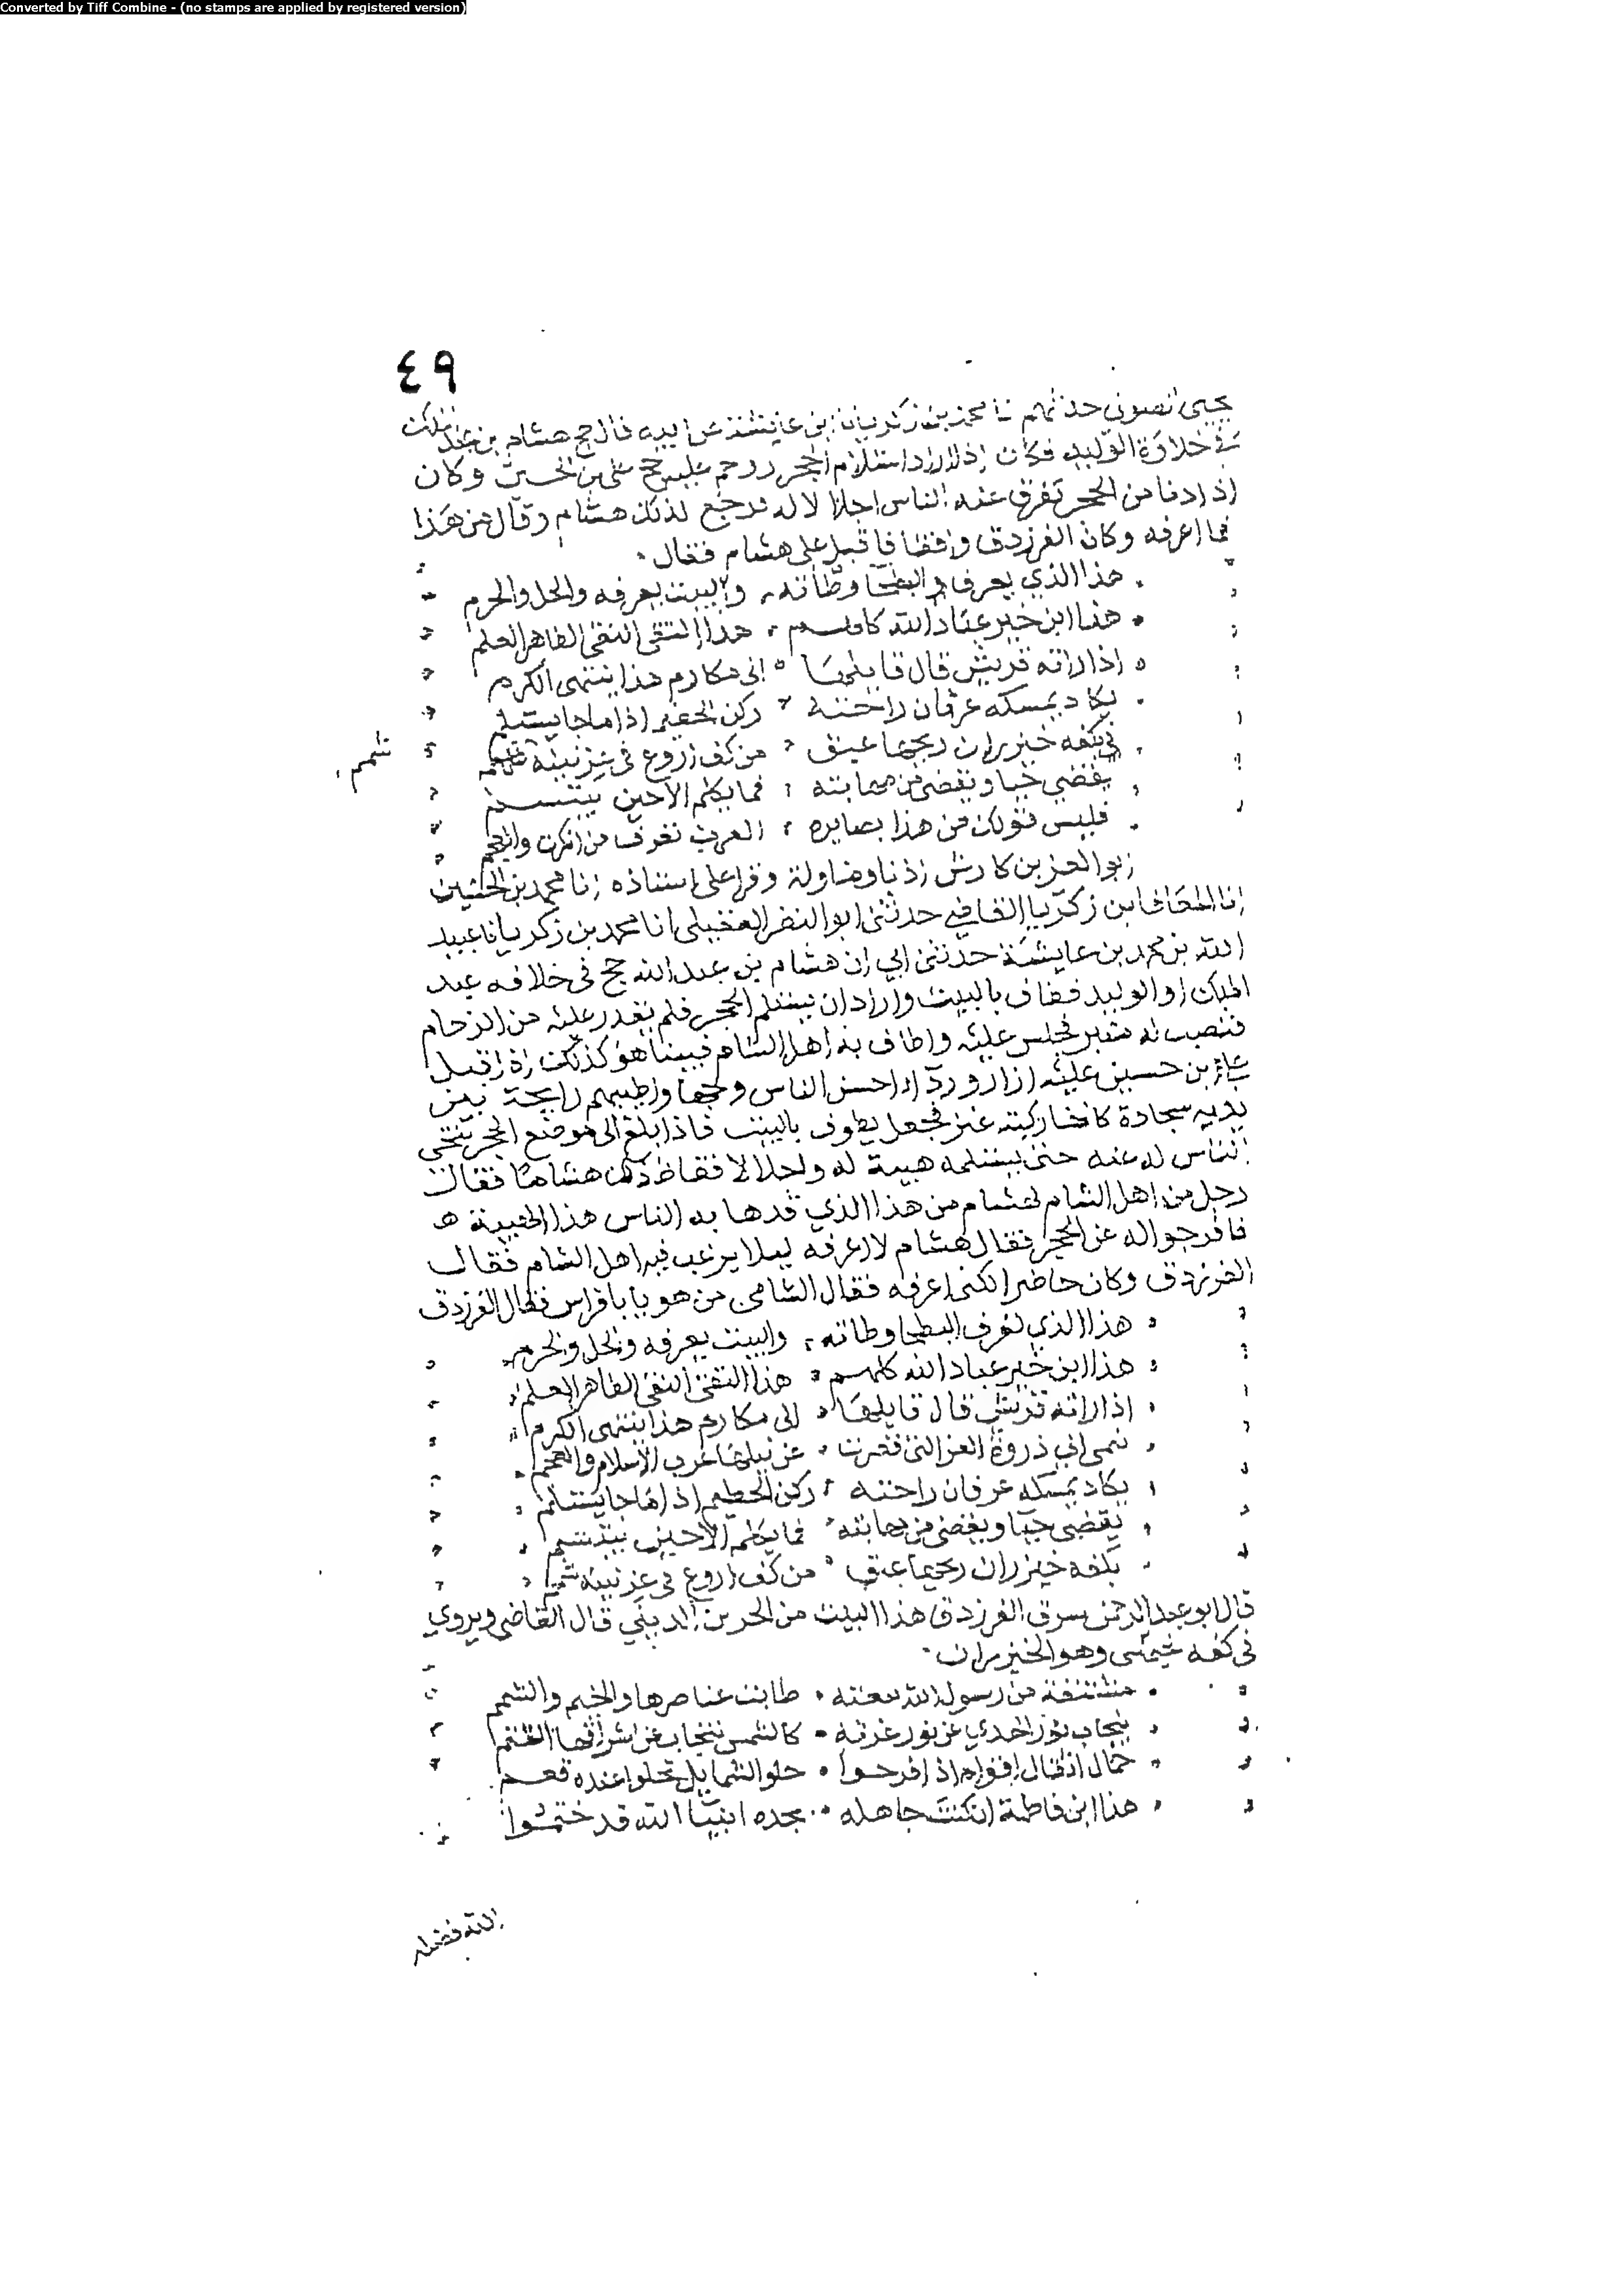 Converted by Tiff Combine - (no stamps are applied by registered version)
٤٩
يحيى الصولي حدثهم نا محمد بن زكريا نا ابن عايشة عن ابيه قال حج هشام بن عبد الملك
في خلافة الوليد فكان إذا اراد استلام الحجر زوحم عليه حج علي بن الحسين وكان
اذا دنا من الحجر تفرق عنه الناس اجلالا له فوجم لذلك هشام وقال من هذا
فما اعرفه وكان الفرزدق واقفا فاقبل على هشام فقال
هذا الذي يعرف البطحا وطاته والبيت يعرفه والحل والحرم
هذا ابن خير عباد الله كلهم هذا التقي النقي الطاهر العلم
اذا راته قريش قال قايلها الى مكارم هذا ينتهي الكرم
يكاد يمسكه عرفان راحته ركن الحطيم اذا ما جا يستلم
في كفه خيزران ريحها عبق من كف اروع في عرنينه شمم
شمم
يغضي حيا ويغضى من مهابته فما يكلم الا حين يبتسم
فليس قولك من هذا بضايره العرب تعرف من انكرت والعجم
ابو العز بن كادش اذنا ومناولة وقرا على اسناده انا محمد بن الحسين
انا المعافا بن زكريا القاضي حدثني ابو النضر العقيلي انا محمد بن زكريا نا عبيد
الله بن محمد بن عايشة حدثني ابي ان هشام بن عبد الله حج في خلافه عبد
الملك او الوليد فطاف بالبيت واراد ان يستلم الحجر فلم يقدر عليه من الزحام
فنصب له منبر فجلس عليه واطاف به اهل الشام فبينا هو كذلك اذ اقبل
علي بن حسين عليه ازار وردا احسن الناس وجها واطيبهم رايحة بين
يديه سجادة كانها ركبة عنز فجعل يطوف بالبيت فاذا بلغ الى موضع الحجر تنحى
الناس له عنه حتى يستلمه هيبة له واجلالا فغاظ ذلك هشاما فقال
رجل من اهل الشام لهشام من هذا الذي قد هابه الناس هذا الهيبة
فافرجوا له عن الحجر فقال هشام لا اعرفه ليلا يرغب فيه اهل الشام فقال
الفرزدق وكان حاضرا لكني اعرفه فقال الشامي من هو يا با فراس فقال الفرزدق
هذا الذي تعرف البطحا وطاته والبيت يعرفه والحل والحرم
هذا ابن خير عباد الله كلهم هذا التقي النقي الطاهر العلم
اذا راته قريش قال قايلها الى مكارم هذا ينتهي الكرم
ينمى الى ذروة العز التي قصرت عن نيلها عرب الاسلام والعجم
يكاد يمسكه عرفان راحته ركن الحطيم اذا ما جا يستلم
يغضي حيا ويغضى من مهابته فما يكلم الا حين يبتسم
بكفه خيزران ريحها عبق من كف اروع في عرنينه شمم
قال ابو عبد الرحمن سرق الفرزدق هذا البيت من الحرين الديني قال القاضي ويروي
في كفه جهني وهو الخيزران
مشتقة من رسول الله نبعته طابت عناصرها والخيم والشيم
ينجاب نور الهدى عن نور غرته كالشمس تنجاب عن اشراقها القتم
حمال اثقال اقوام اذا فرحوا حلو الشمايل تحلوا عنده نعم
هذا ابن فاطمة ان كنت جاهله بجده انبيا الله قد ختموا
الله فضله